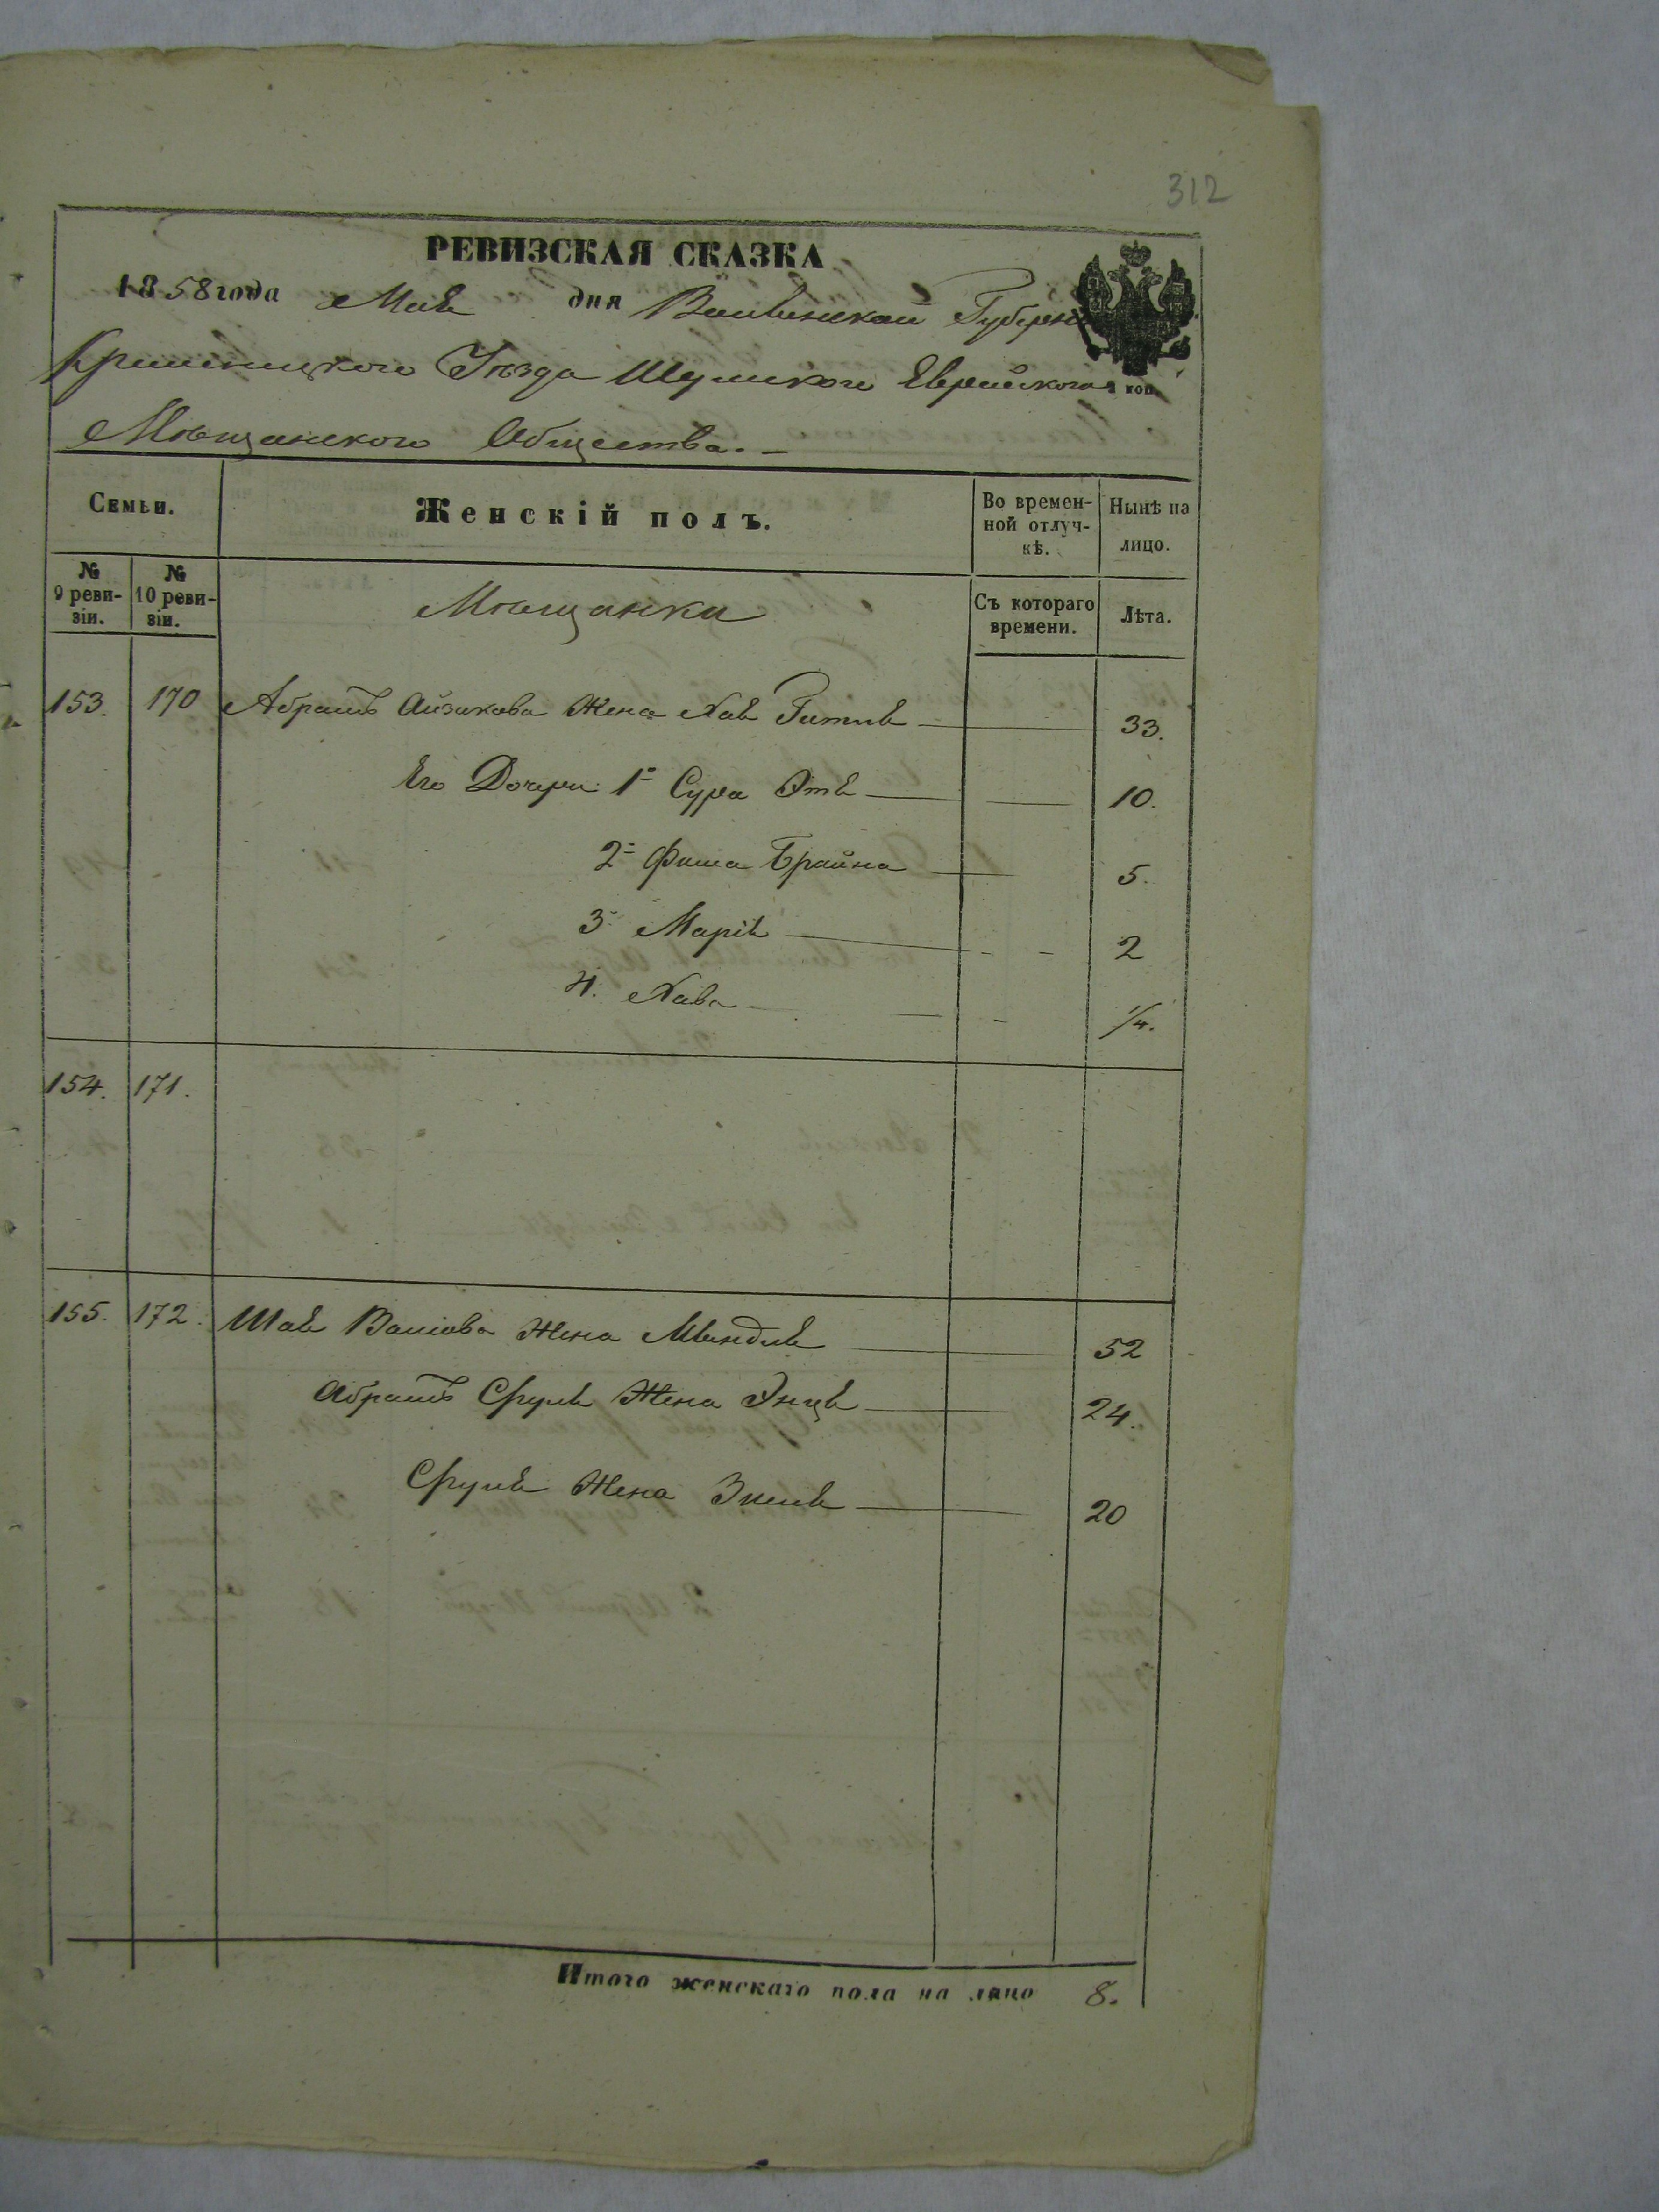 312
РЕВИЗСКАЯ СКАЗКА
1858 года Мая дня Волынской Губерни
Кременецкого Уезда Шумского Еврейского
коп.
Мѣщанского Общества.
Семьи. Женскій полъ. Во времен- Нынѣ на
ной отлуч- лицо.
кѣ.
№ №
9 реви- 10 реви- Мѣщанки Съ котораго Лѣта.
зіи. зіи. времени.
153. 170 Абрамъ Айзикова Жена Хая Гитля 33.
Его Дочери 1я Сура Этя 10.
2я Фиша Брайна 5.
3 Марія 2
4. Хава 1/4.
154. 171.
155. 172. Шая Жена Мындля 52
Абрамъ Сруля Жена Энця 24.
Сруля Жена 20
Итого женскаго пола на лицо 8.